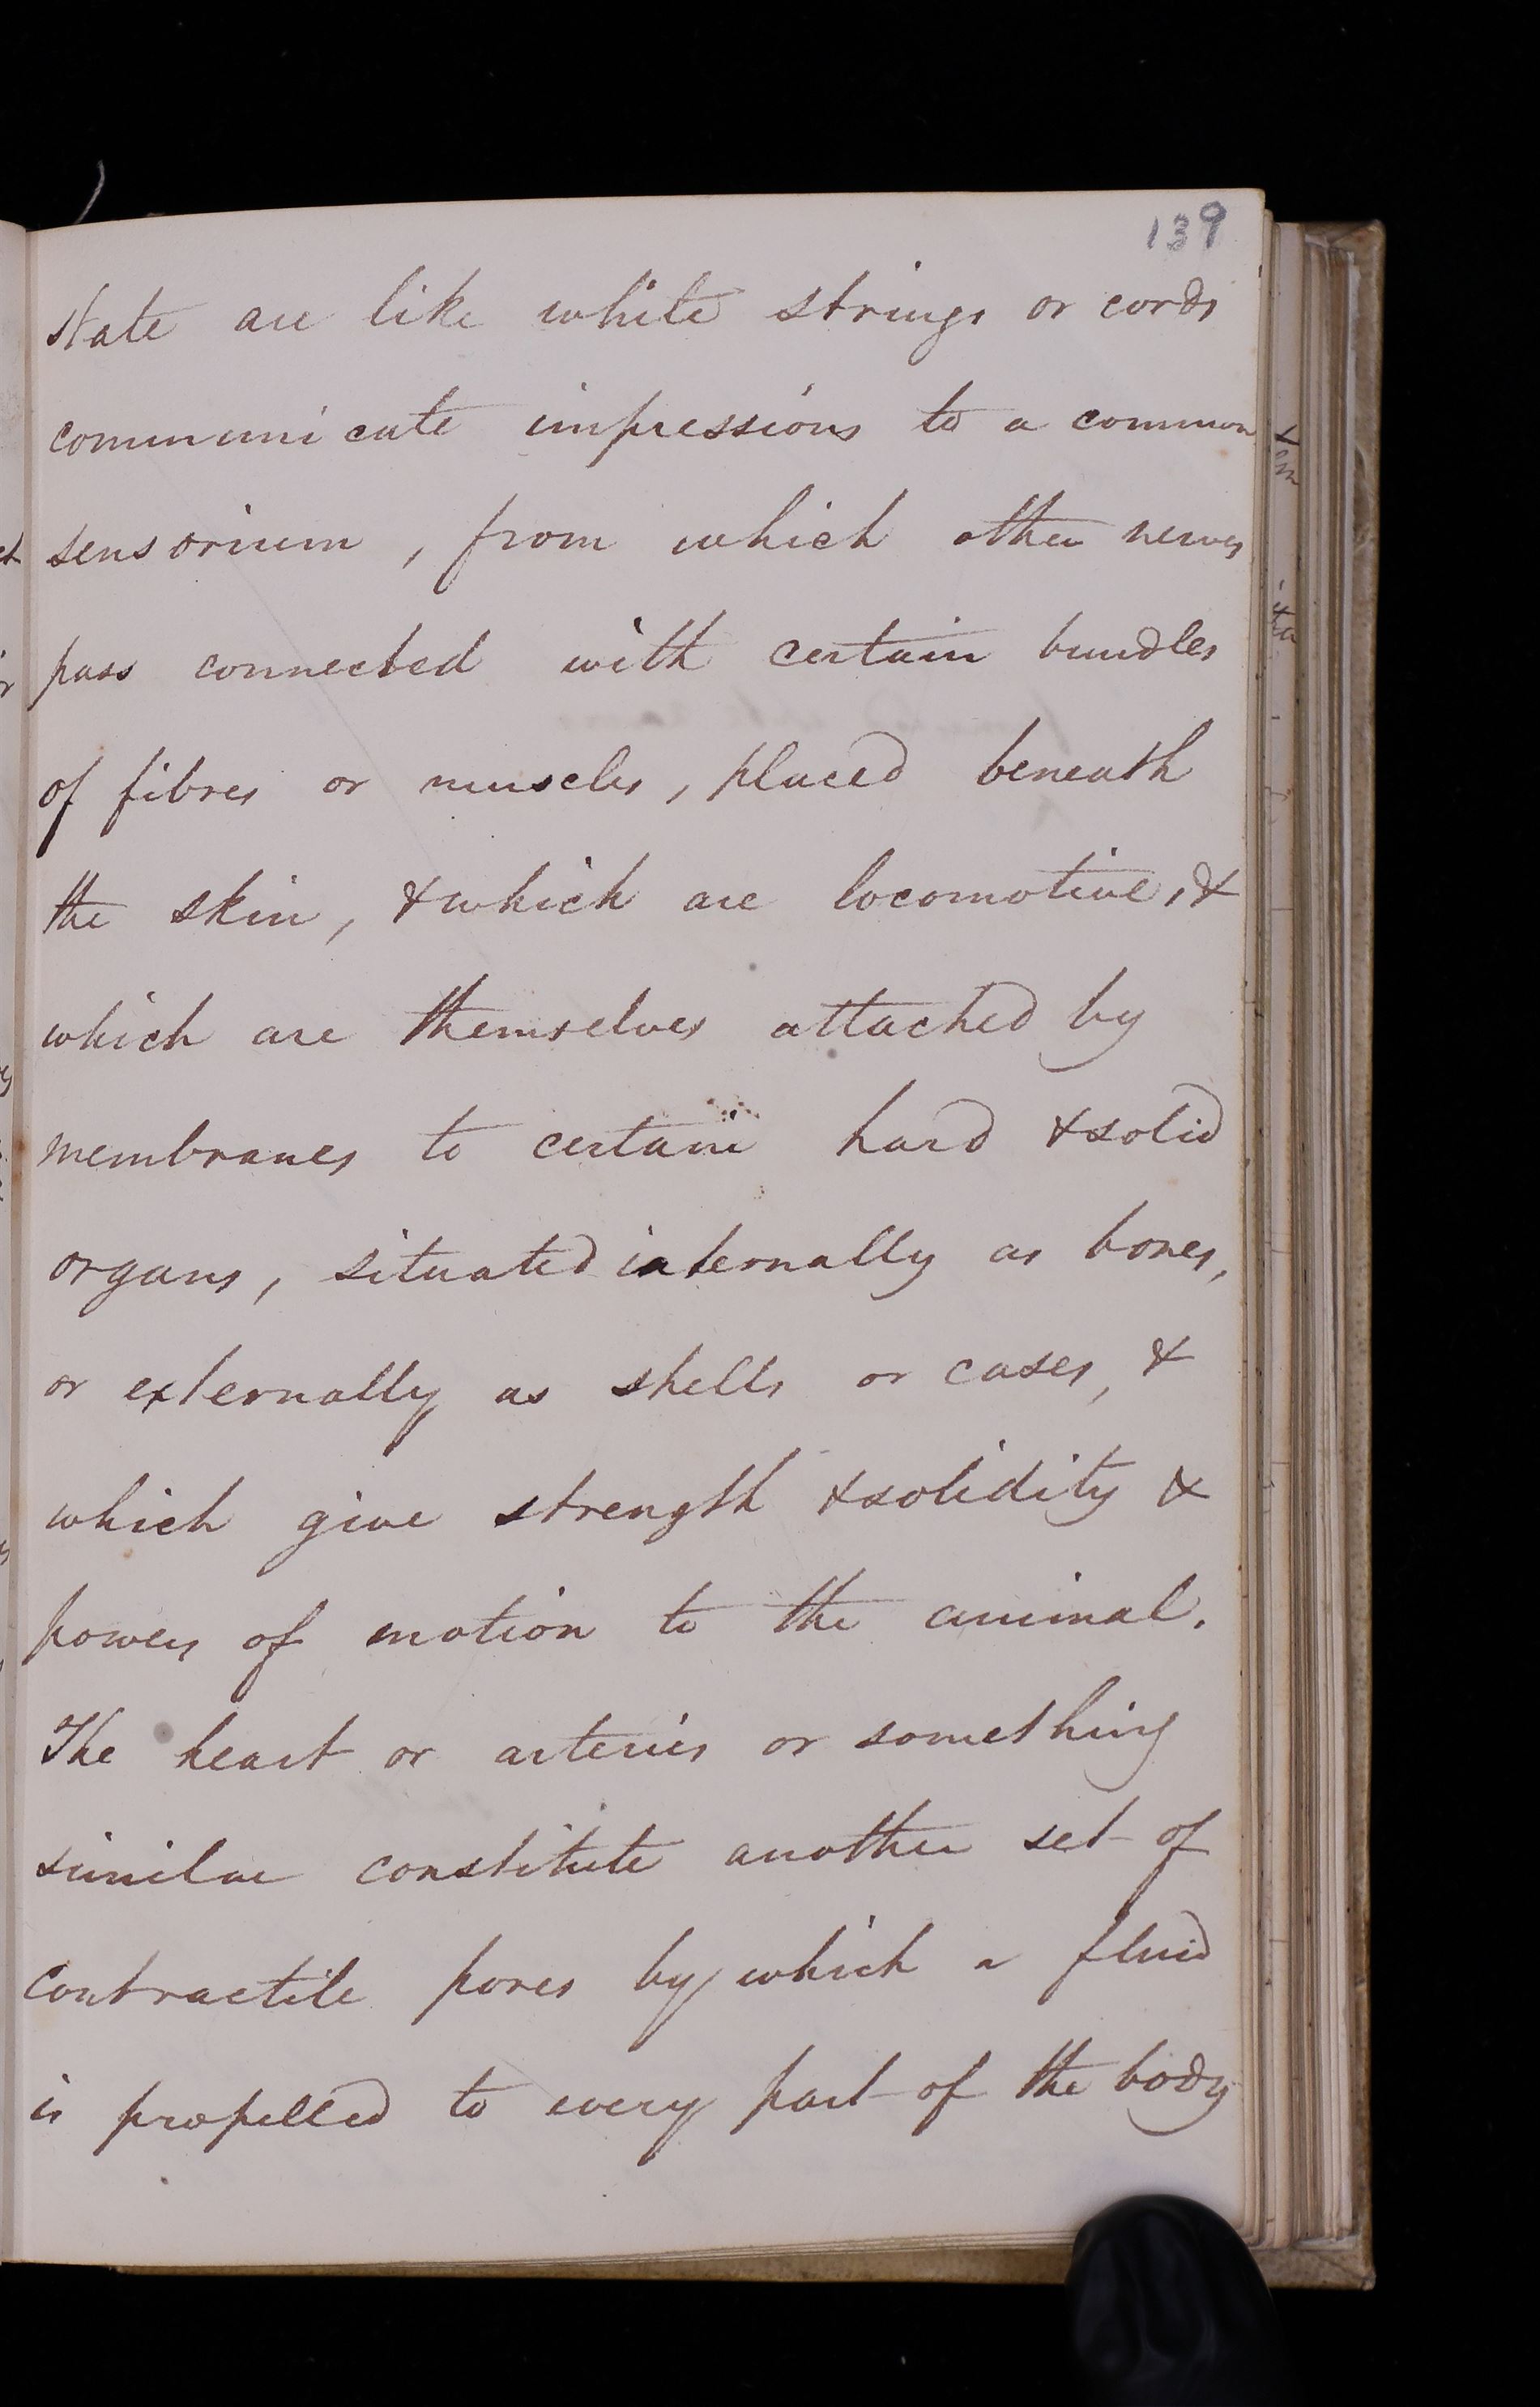 139
state are like white strings or cords
communicate impressions to a common
sensorium, from which other nerves
pass connected with certain bundles
of fibres or muscles, placed beneath
the skin, & which are locomotive, &
which are themselves attached by
membranes to certain hard & solid
organs, situated internally as bones,
or externally as shells or cases, &
which give strength & solidity &
powers of motion to the animal.
The heart or arteries or something
similar constitute another set of
contractile pores by which a fluid
is propelled to every part of the body